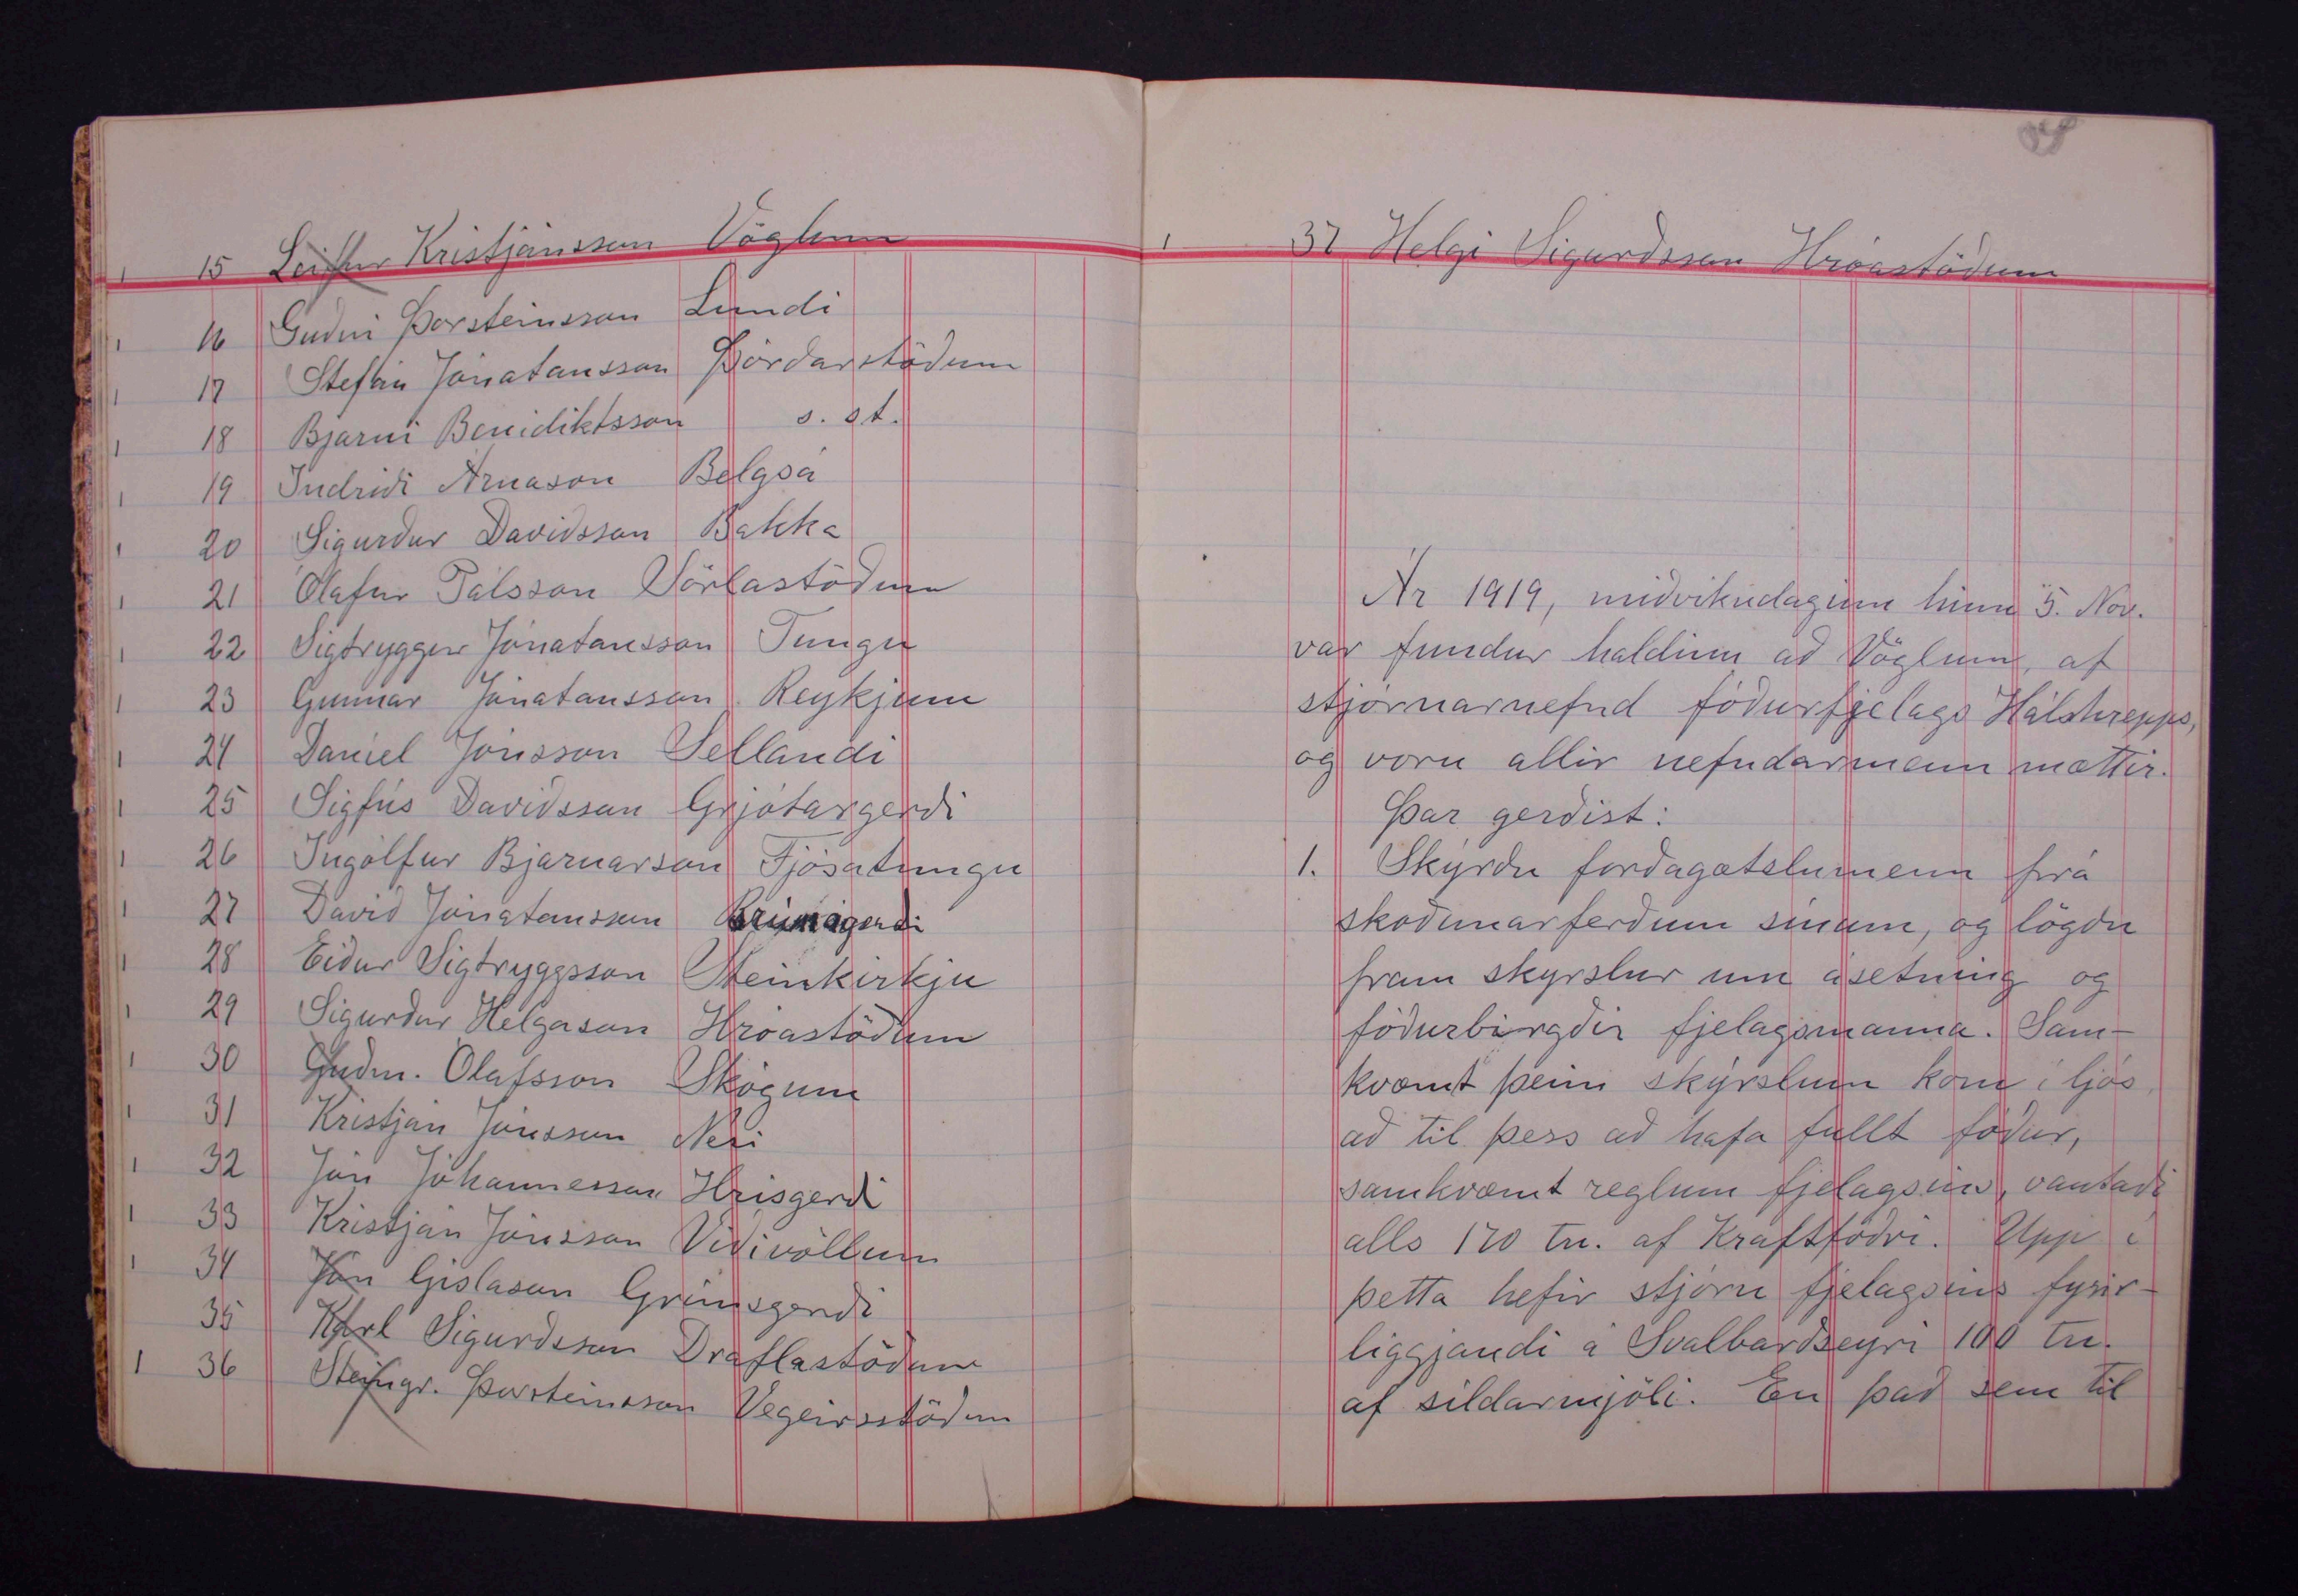 15 Leifur Kristjánsson Vöglum
16 Guðni Þorsteinsson Lundi
17 Stefán Jónatansson Þórðarstöðum
18 Bjarni Benidiktsson s. st.
19 Indriði Árnason Belgsá
20 Sigurður Davíðsson Bakka
21 Ólafur Pálsson Sörlastöðum
22 Sigtryggur Jónatansson Tungu
23 Gunnar Jónatansson Reykjum
24 Daníel Jónsson Sellandi
25 Sigfús Davíðsson Grjótargerði
26 Ingólfur Bjarnarson Fjósatungu
27 Davíð Jónatansson
28 Eiður Sigtryggsson Steinkirkju
29 Sigurður Helgason Hróastöðum
30 Guðm. Ólafsson Skógum
31 Kristján Jónsson Nesi
32 Jón Jóhannesson Hrísgerði
33 Kristján Jónsson Víðivöllum
34 Jón Gíslason Grímsgerði
35 Karl Sigurðsson Draflastöðum
36 Steingr. Þorsteinsson Vegeirsstöðum
37 Helgi Sigurðsson Hróastöðum
Ár 1919, miðvikudaginn hinn 5. Nov.
var fundur haldinn að Vöglum, af
stjórnarnefnd fóðurfjelags Hálshrepps,
og voru allir nefndarmenn mættir.
Þar gerðist:
1. Skýrðu forðagætslumenn frá
skoðunarferðum sínum, og lögðu
fram skyrslur um ásetning og
fóðurbirgðir fjelagsmanna. Sam-
kvæmt þeim skýrslum kom í ljós
að til þess að hafa fullt fóður,
samkvæmt reglum fjelagsins, vantaði
alls 170 tn. af Kraftfóðri. Upp í
þetta hefir stjórn fjelagsins fyrir-
liggjandi á Svalbarðseyri 100 tn.
af síldarmjöli. En það sem til